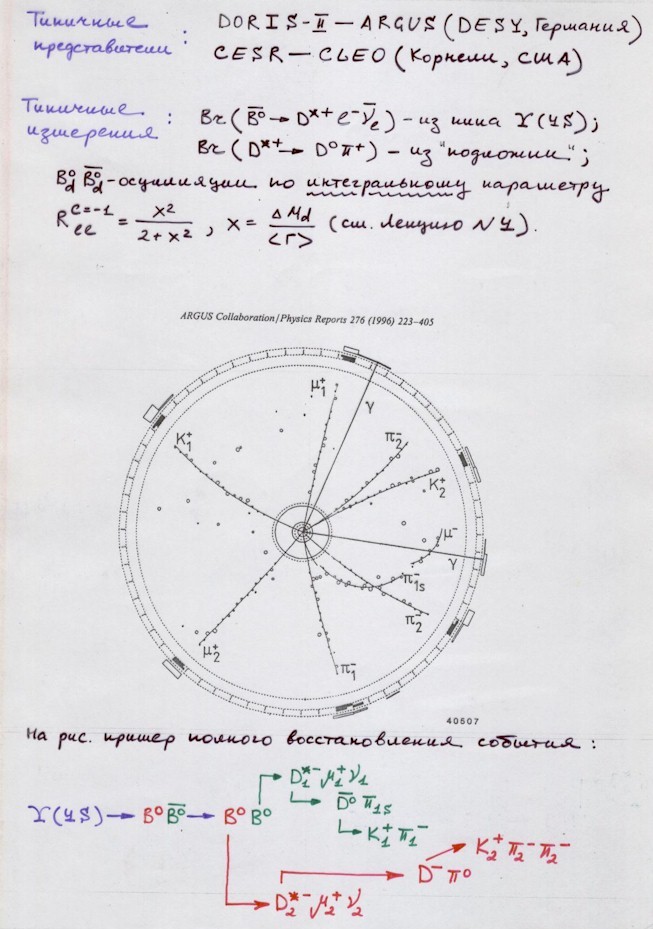 Типичные представители : DORIS-II — ARGUS (DESY, Германия)
CESR — CLEO (Корнелл, США)
Типичные измерения : Br(B̄⁰ → D*⁺ e⁻ ν̄ₑ) – из пика ϒ(4S);
Br(D*⁺ → D⁰π⁺) – из "подложки";
B⁰d B̄⁰d - осцилляции по интегральному параметру
R^{C=-1}_{ℓℓ} = x²/(2+x²), x = ΔMd/<Γ> (см. Лекцию N4).
ARGUS Collaboration/Physics Reports 276 (1996) 223–405
μ₁⁺
γ
K₁⁺
π₂⁻
K₂⁺
μ⁻
γ
π₁s⁻
π₂⁻
μ₂⁺
π₁⁻
40607
На рис. пример полного восстановления события :
D₁*⁻ μ₁⁺ ν₁
D̄⁰ π̄₁s
ϒ(4S) → B⁰B̄⁰ → B⁰B⁰
K₁⁺ π₁⁻
K₂⁺ π₂⁻ π₂⁻
D⁻ π⁰
D₂*⁻ μ₂⁺ ν₂